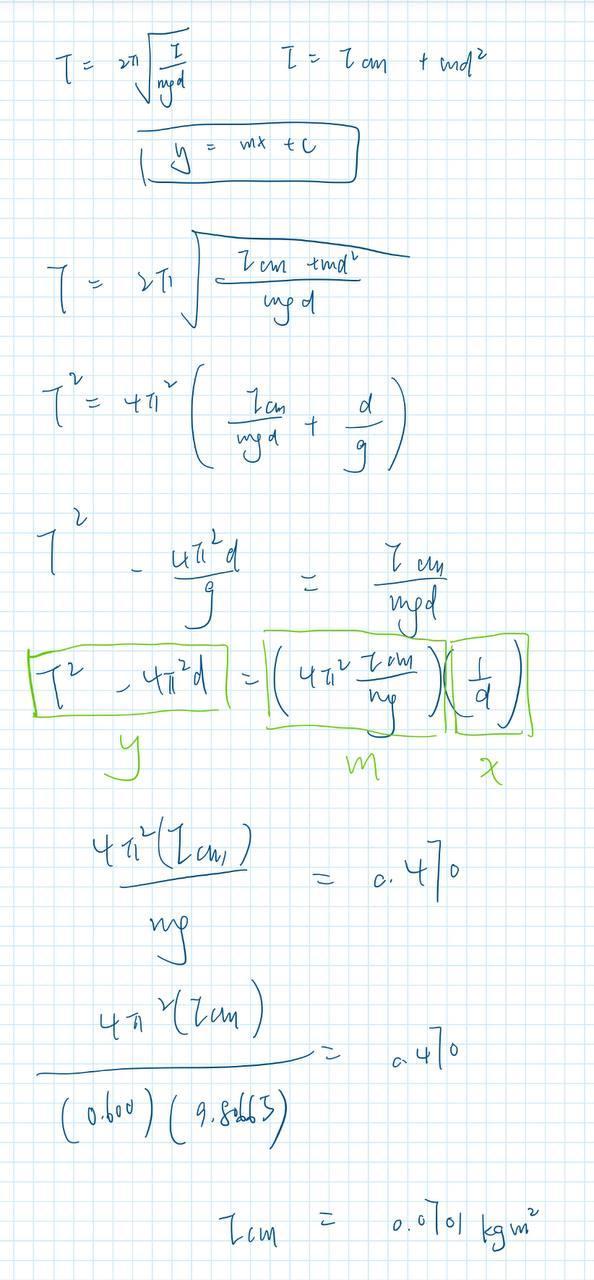 T = 2π √(I/mgd)   I = Icm + md²
y = mx + c
T = 2π √((Icm + md²)/mgd)
T² = 4π² (Icm/mgd + d/g)
T² - 4π²d/g = Icm/mgd
T² - 4π²d = (4π² Icm/mg)(1/d)
y   m   x
4π²(Icm)/mg = 0.470
4π²(Icm)/(0.600)(9.80665) = 0.470
Icm = 0.0701 kgm²